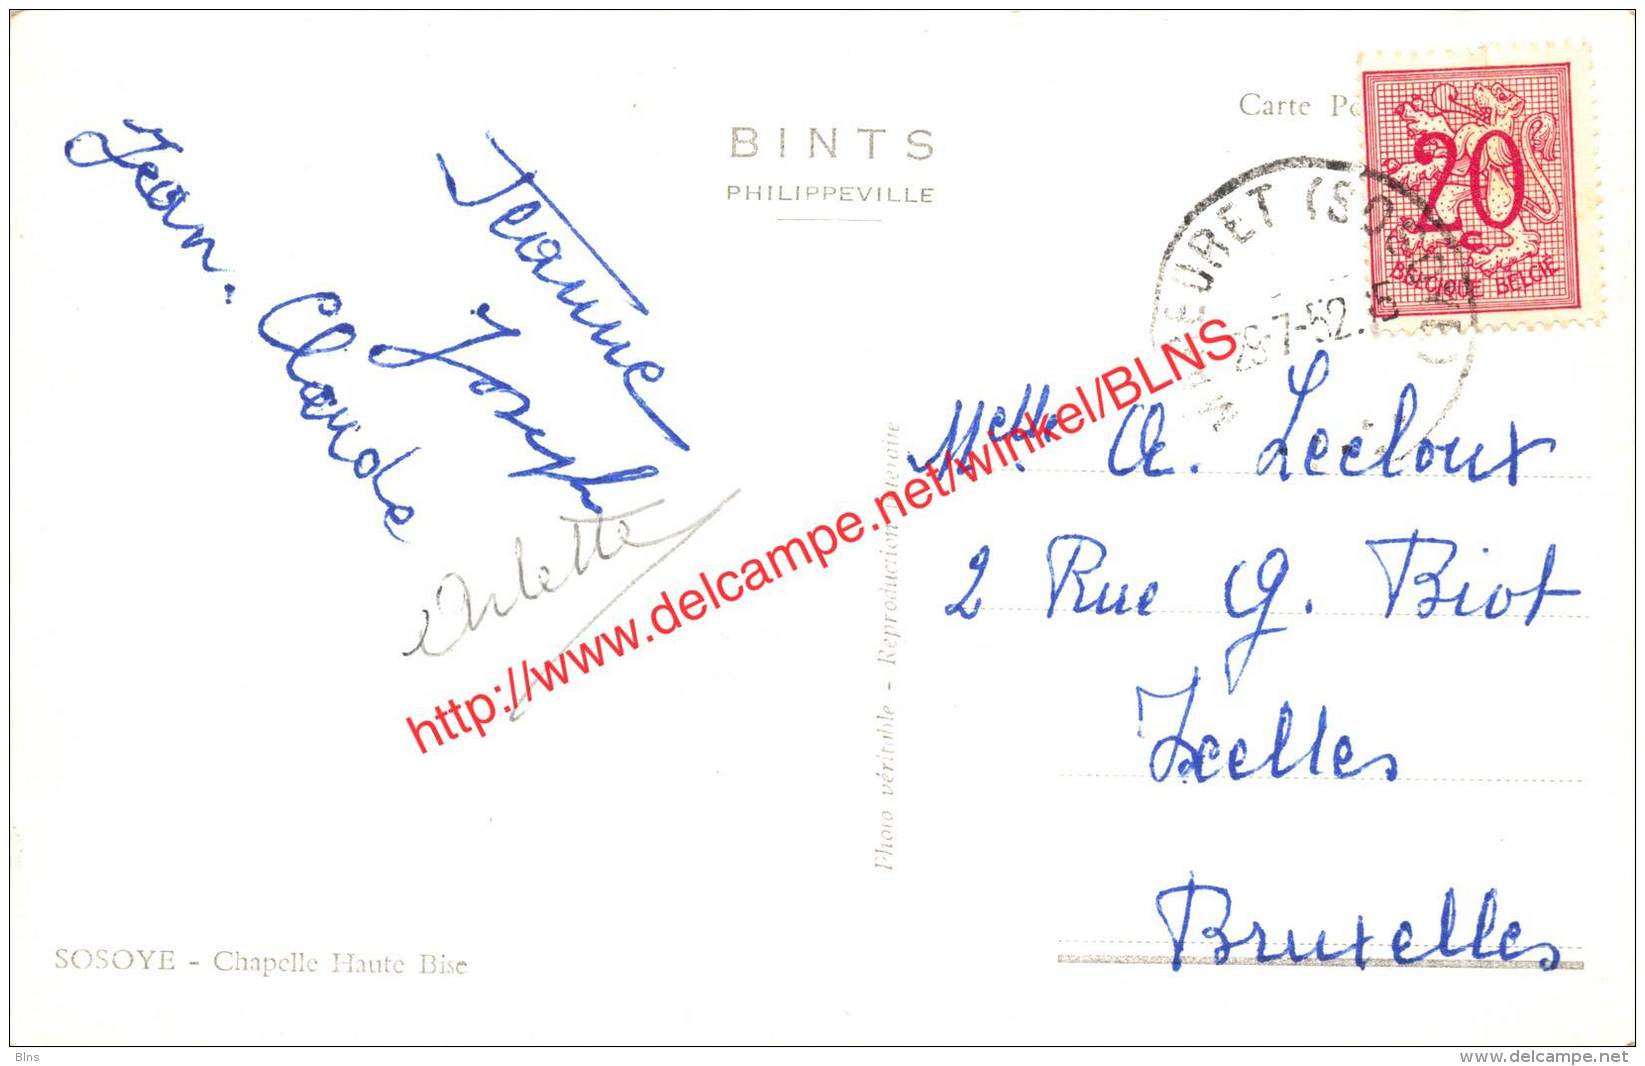 Carte
BINTS
PHILIPPEVILLE
20
c
BELGIQUE BELGIË
29-7-52
Jean. Claude
Jeanne
Joseph
Arlette
Melle. A. Lecloux
2 Rue G. Biot
Ixelles
Bruxelles
Photo véritable - Reproduction interdite
SOSOYE - Chapelle Haute Bise
http://www.delcampe.net/winkel/BLNS
Blns
www.delcampe.net